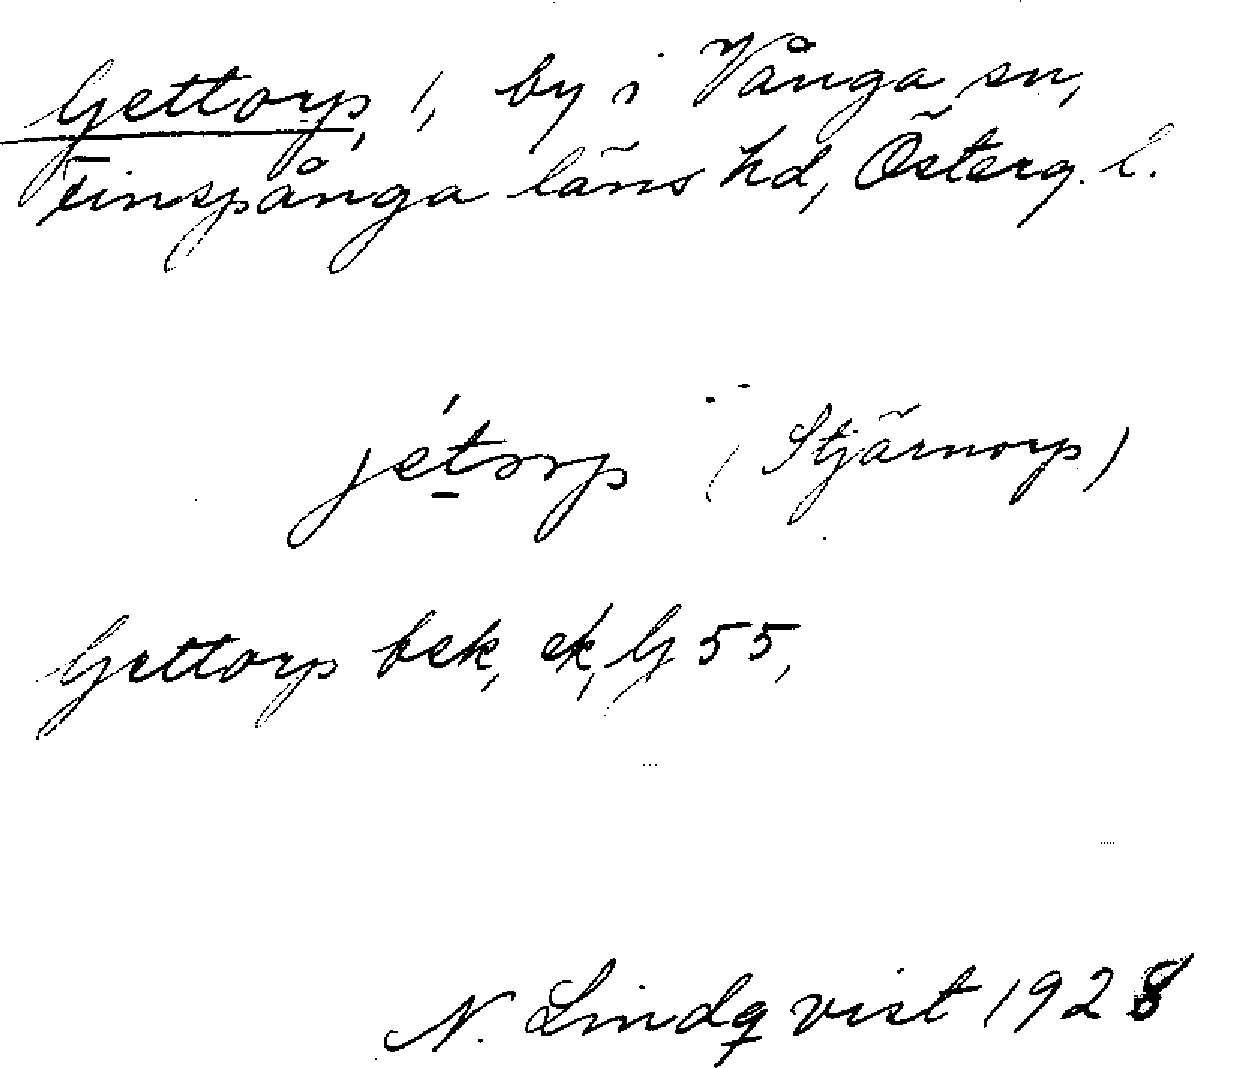 Gettorp, 1, by i Vånga sn,
Finspånga läns hd, Österg. l.
jétorp (Stjärnorp)
Gettorp bek, ek, G 55,
N. Lindqvist 1928